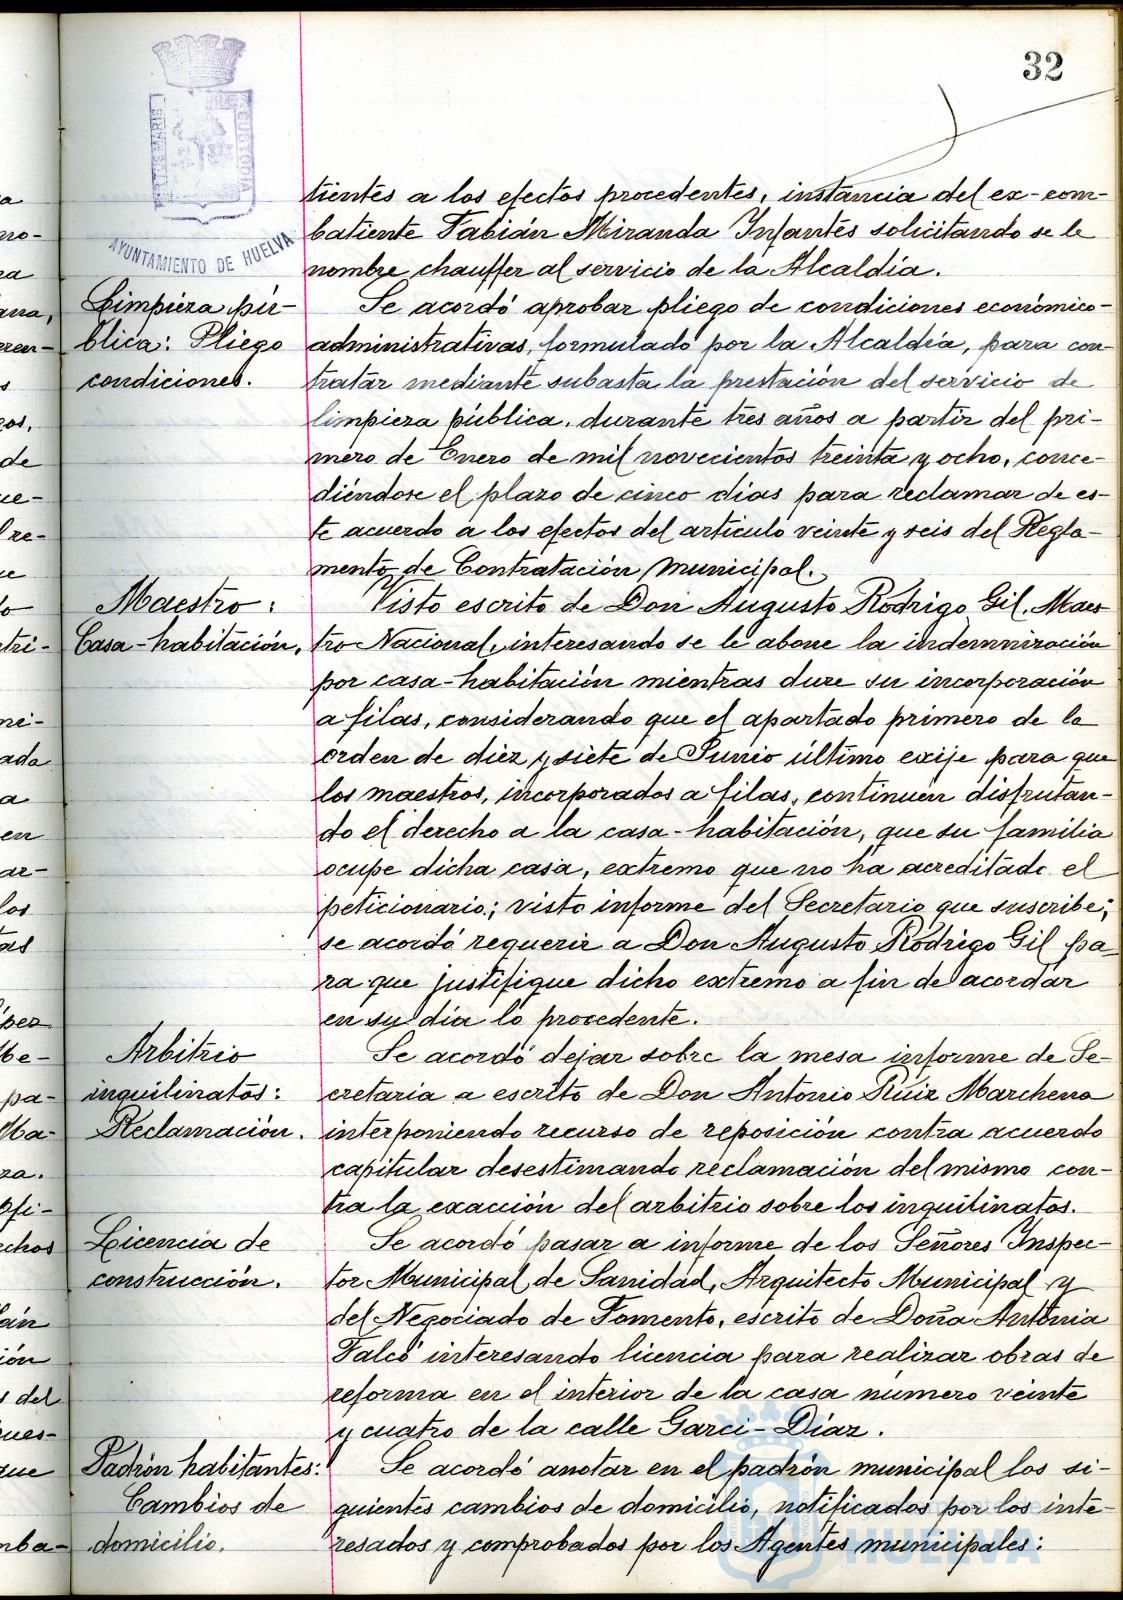 32
AYUNTAMIENTO DE HUELVA
tientes a los efectos procedentes, instancia del ex-com-
batiente Fabián Miranda Infantes solicitando se le
nombre chauffer al servicio de la Alcaldía.
Limpieza pú-
blica: Pliego
condiciones.
Se acordó aprobar pliego de condiciones económico-
administrativas, formulado por la Alcaldía, para con-
tratar mediante subasta la prestación del servicio de
limpieza pública, durante tres años a partir del pri-
mero de Enero de mil novecientos treinta y ocho, conce-
diéndose el plazo de cinco días para reclamar de es-
te acuerdo a los efectos del artículo veinte y seis del Regla-
mento de Contratación Municipal.
Maestro:
Casa-habitación.
Visto escrito de Don Augusto Rodrigo Gil, Maes
tro Nacional, interesando se le abone la indemnización
por casa-habitación mientras dure su incorporación
a filas, considerando que el apartado primero de la
orden de diez y siete de Junio último exije para que
los maestros, incorporados a filas, continuen disfrutan-
do el derecho a la casa-habitación, que su familia
ocupe dicha casa, extremo que no ha acreditado el
peticionario; visto informe del Secretario que suscribe;
se acordó requerir a Don Augusto Rodrigo Gil pa-
ra que justifique dicho extremo a fin de acordar
en su día lo procedente.
Arbitrio
inquilinatos:
Reclamación.
Se acordó dejar sobre la mesa informe de Se-
cretaria a escrito de Don Antonio Ruiz Marchena
interponiendo recurso de reposición contra acuerdo
capitular desestimando reclamación del mismo con-
tra la exacción del arbitrio sobre los inquilinatos.
Licencia de
construcción.
Se acordó pasar a informe de los Señores Inspec-
tor Municipal de Sanidad, Arquitecto Municipal y
del Negociado de Fomento, escrito de Doña Antonia
Falcó interesando licencia para realizar obras de
reforma en el interior de la casa número veinte
y cuatro de la calle Garci-Díaz.
Padrón habitantes:
Cambios de
domicilio.
Se acordó anotar en el padrón municipal los si-
guientes cambios de domicilio, notificados por los inte-
resados y comprobados por los Agentes municipales:
HUELVA